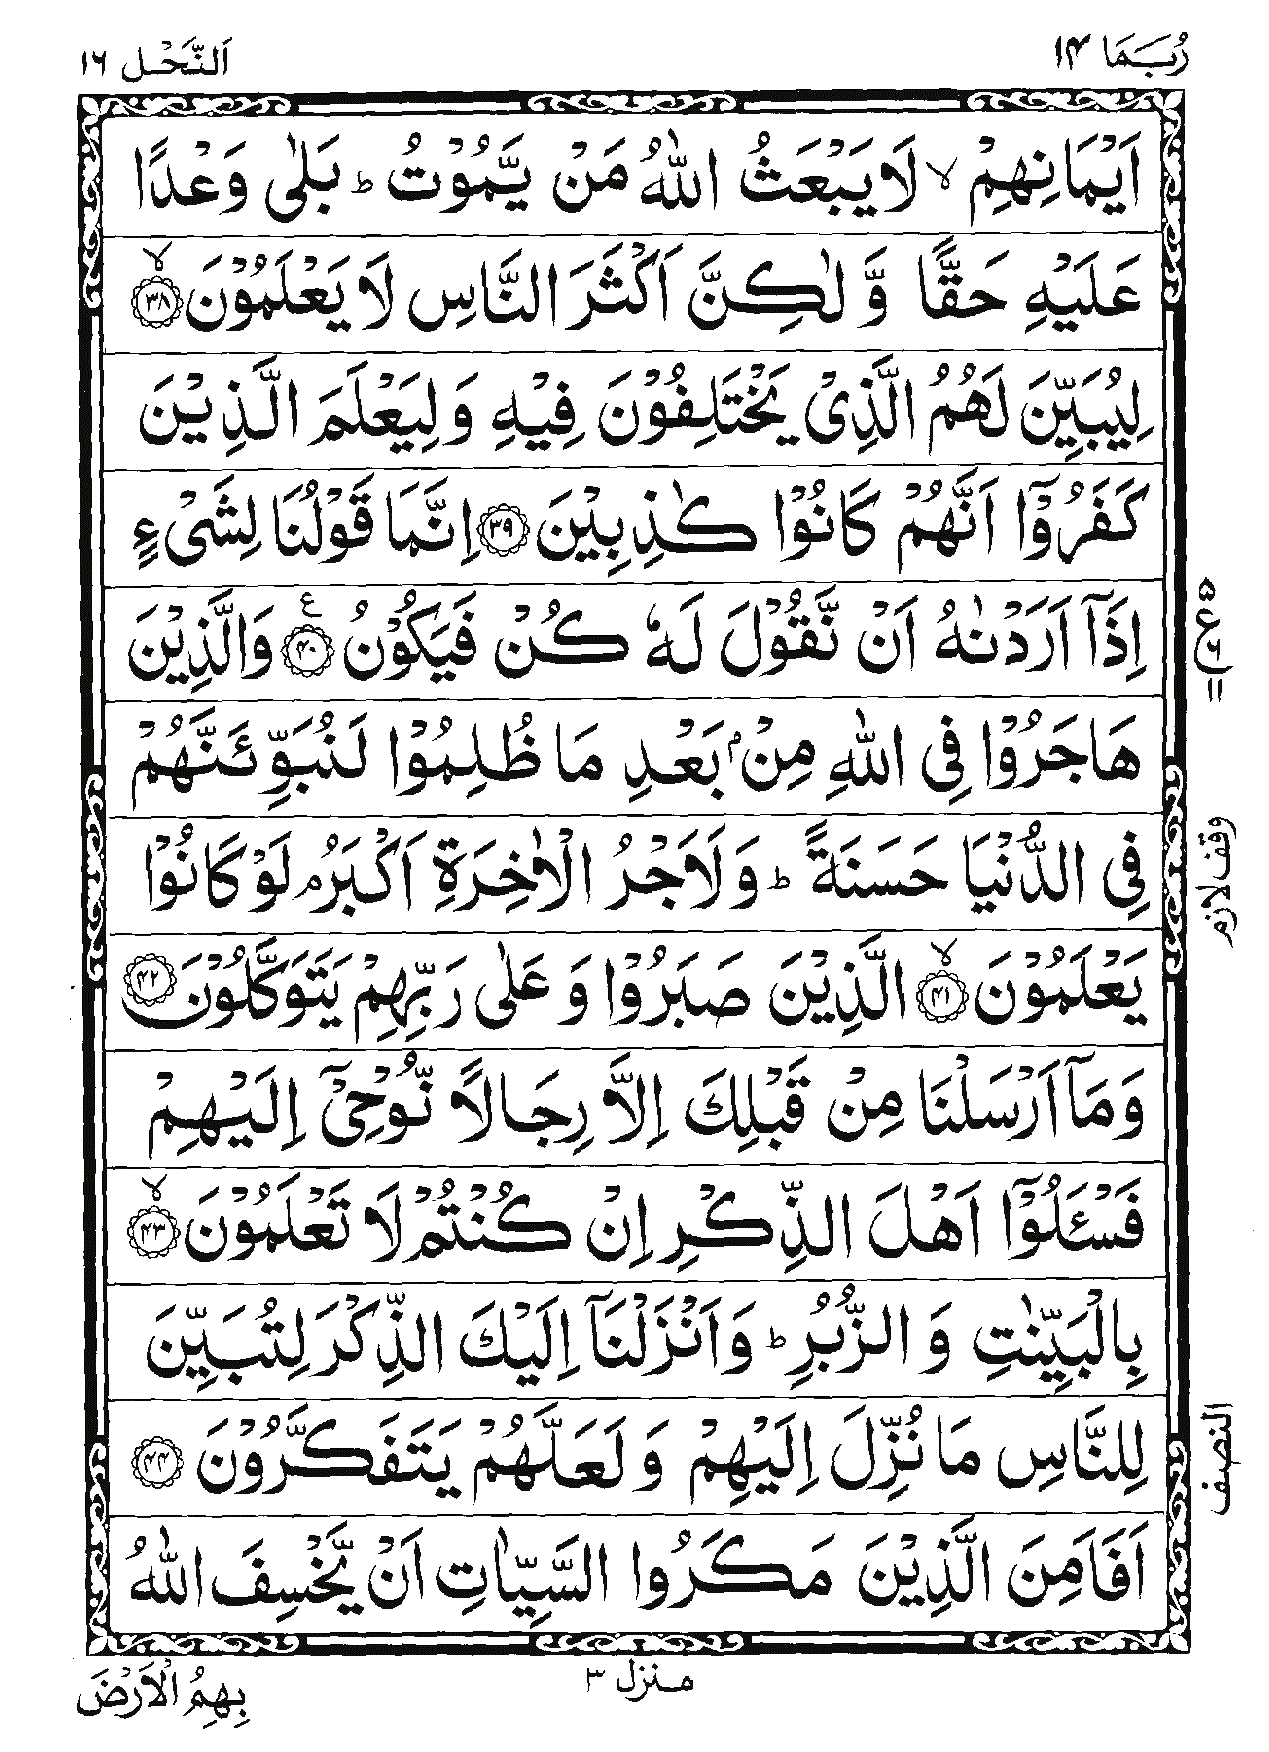 رُبَمَا ۱۴
اَلنَّحْل ۱۶
اَیْمَانِهِمْ ۙ لَا یَبْعَثُ اللّٰهُ مَنْ یَّمُوْتُ ؕ بَلٰی وَعْدًا
عَلَیْهِ حَقًّا وَّ لٰكِنَّ اَكْثَرَ النَّاسِ لَا یَعْلَمُوْنَ ۙ﴿۳۸﴾
لِیُبَیِّنَ لَهُمُ الَّذِیْ یَخْتَلِفُوْنَ فِیْهِ وَ لِیَعْلَمَ الَّذِیْنَ
كَفَرُوْۤا اَنَّهُمْ كَانُوْا كٰذِبِیْنَ ﴿۳۹﴾ اِنَّمَا قَوْلُنَا لِشَیْءٍ
اِذَاۤ اَرَدْنٰهُ اَنْ نَّقُوْلَ لَهٗ كُنْ فَیَكُوْنُ ﴿۴۰﴾ ع وَالَّذِیْنَ
۵ ع ۶ ۱۱
هَاجَرُوْا فِی اللّٰهِ مِنْۢ بَعْدِ مَا ظُلِمُوْا لَنُبَوِّئَنَّهُمْ
فِی الدُّنْیَا حَسَنَةً ؕ وَ لَاَجْرُ الْاٰخِرَةِ اَكْبَرُ ۘ لَوْ كَانُوْا
وقف لازم
یَعْلَمُوْنَ ۙ﴿۴۱﴾ الَّذِیْنَ صَبَرُوْا وَ عَلٰی رَبِّهِمْ یَتَوَكَّلُوْنَ ﴿۴۲﴾
وَ مَاۤ اَرْسَلْنَا مِنْ قَبْلِكَ اِلَّا رِجَالًا نُّوْحِیْۤ اِلَیْهِمْ
فَسْـَٔلُوْۤا اَهْلَ الذِّكْرِ اِنْ كُنْتُمْ لَا تَعْلَمُوْنَ ۙ﴿۴۳﴾
بِالْبَیِّنٰتِ وَ الزُّبُرِ ؕ وَ اَنْزَلْنَاۤ اِلَیْكَ الذِّكْرَ لِتُبَیِّنَ
لِلنَّاسِ مَا نُزِّلَ اِلَیْهِمْ وَ لَعَلَّهُمْ یَتَفَكَّرُوْنَ ﴿۴۴﴾
النصف
اَفَاَمِنَ الَّذِیْنَ مَكَرُوا السَّیِّاٰتِ اَنْ یَّخْسِفَ اللّٰهُ
منزل ۳
بِهِمُ الْاَرْضَ